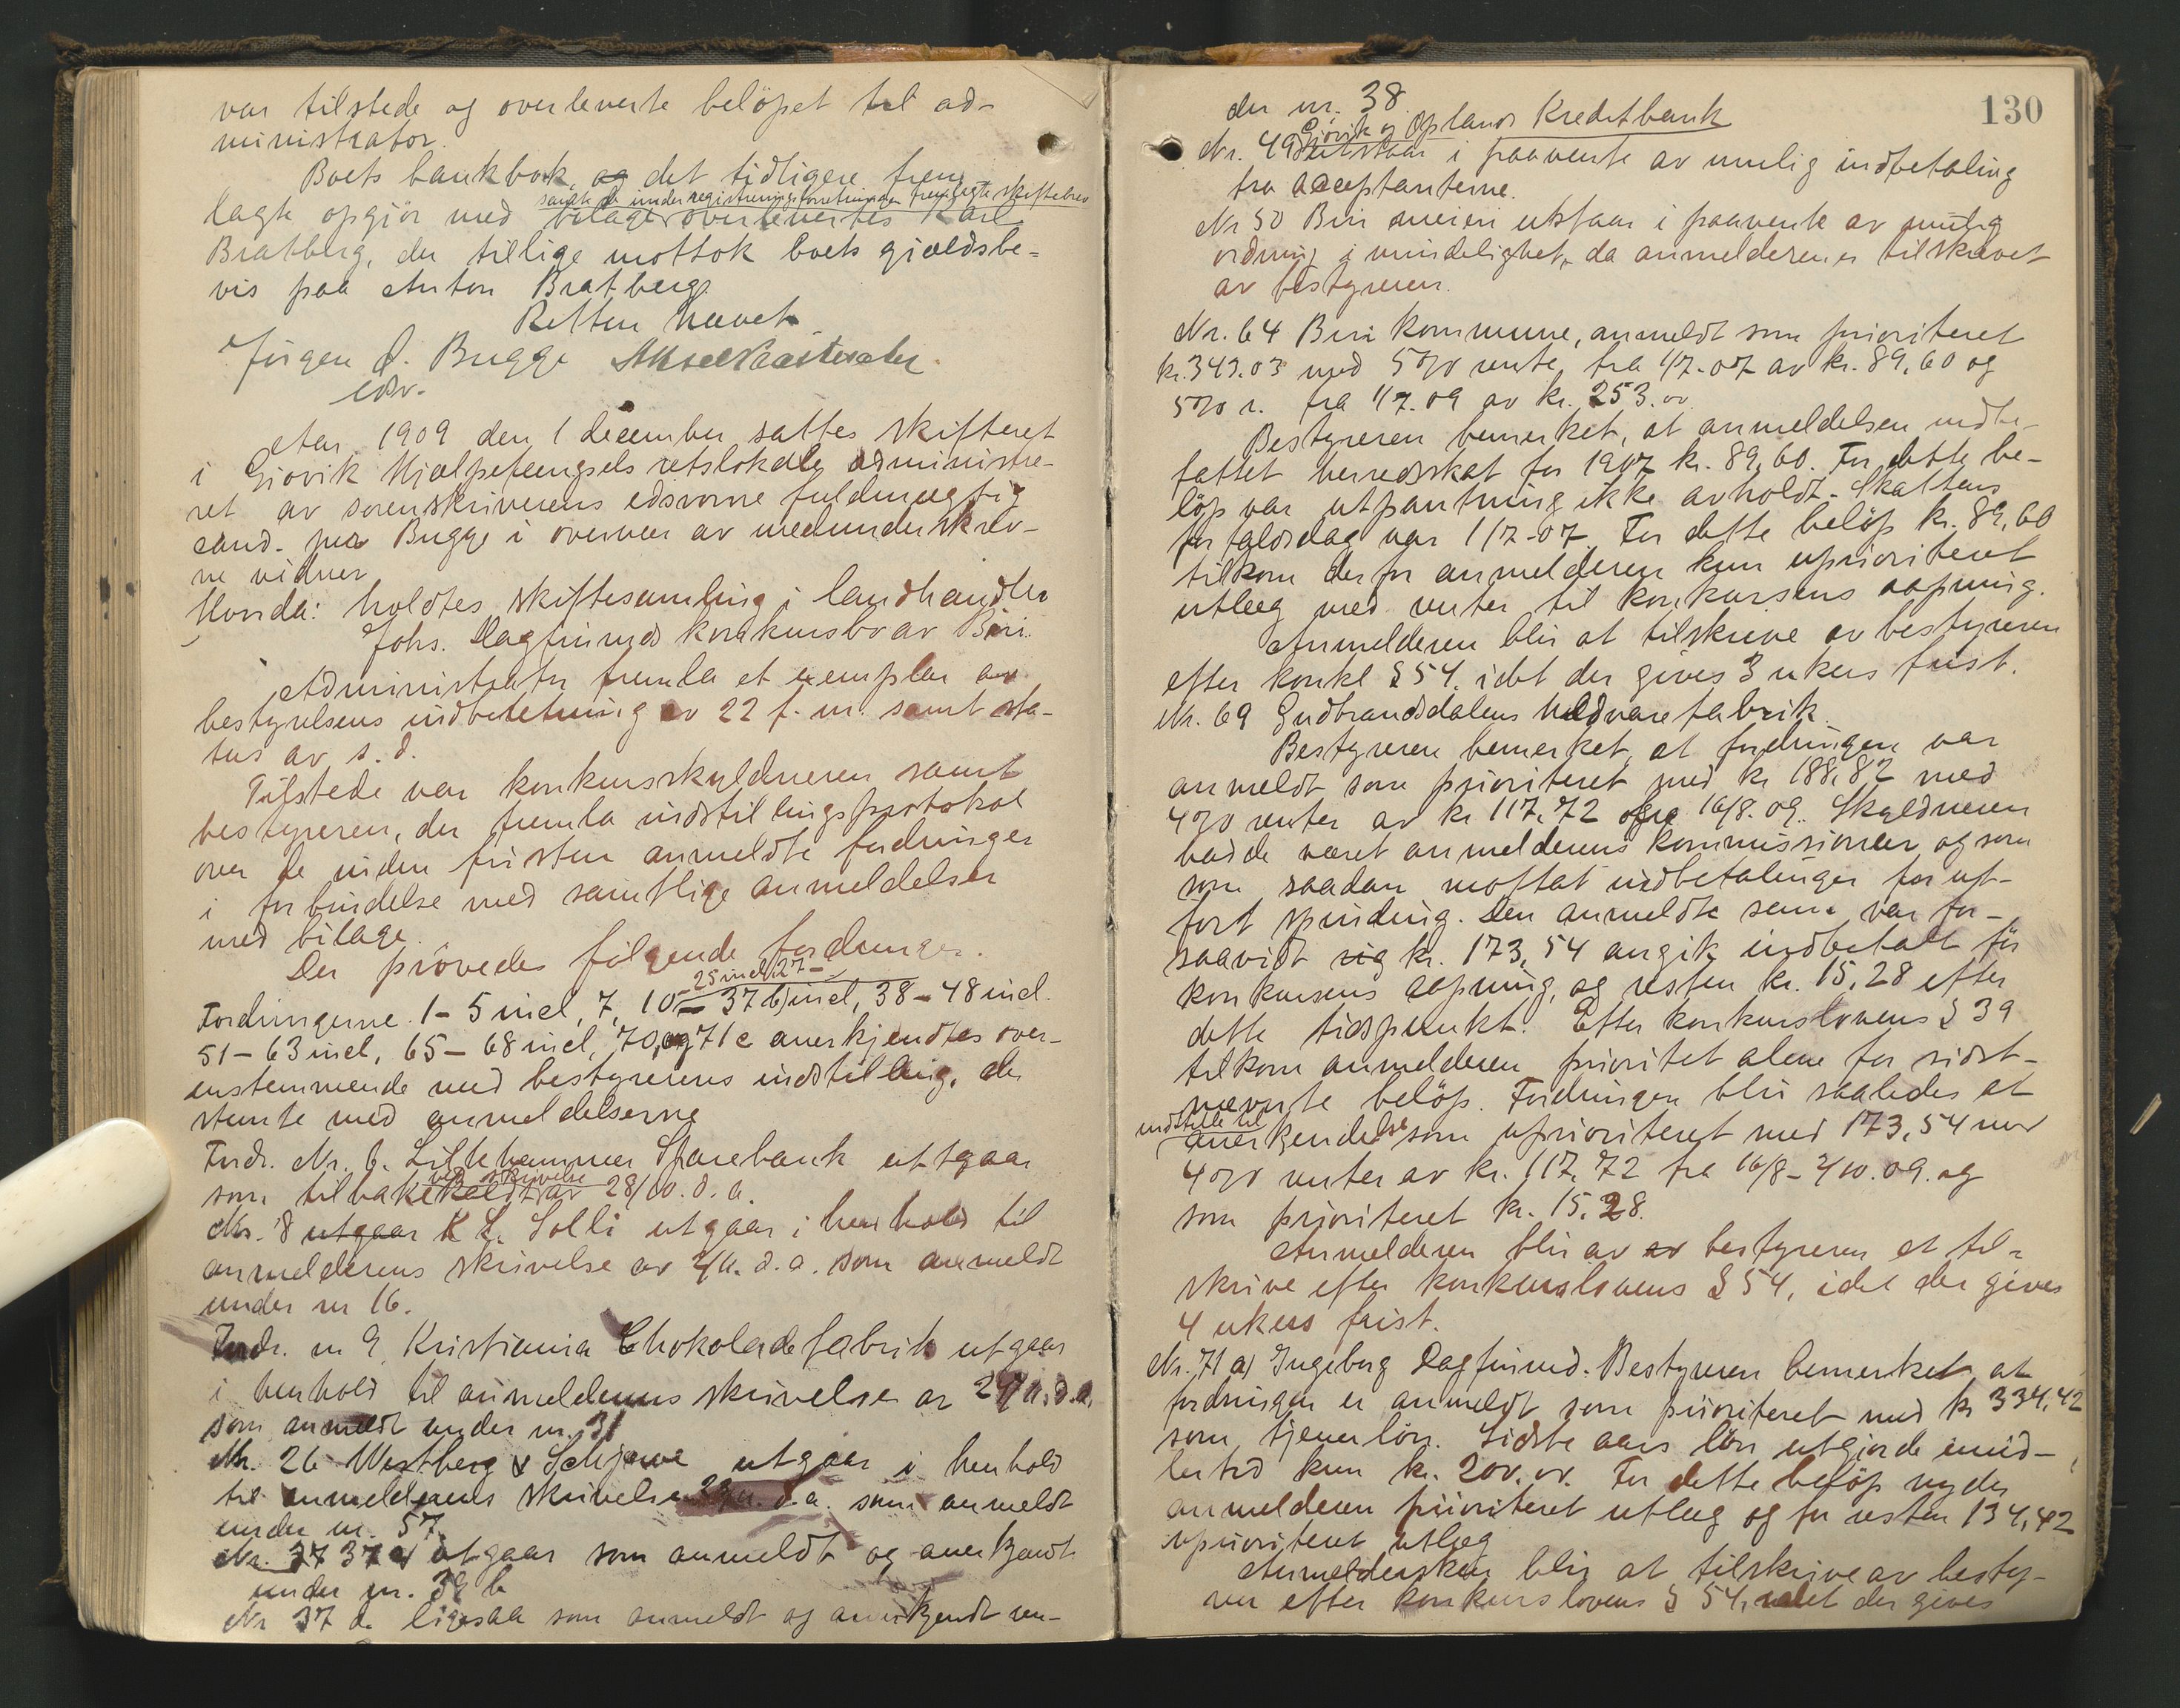 var tilstede og overleverte belöpet til ad-
ministrator.
Boets bankbok, og det tidligere frem-
samt de under registreringsforretningen fremlagte skiftebrev
lagte opgjör med bilage overlevertes Karl
Bratberg, der tillige mottok boets gjældsbe-
vis paa Anton Bratberg.
Retten hævet.
Jürgen J. Bugge
edsv.
Aar 1909 den 1 december sattes skifteret
i Gjövik Hjælpefængsels retslokale administre-
ret av sorenskriverens edsvorne fuldmægtig
cand. jur Bugge i overvær av medunderskrev-
ne vidner
Hvorda: holdtes skiftesamling i landhandler
Johs. Dagfinrud konkursbo av Biri.
Administrator fremla et exemplar av
bestyrelsens indberetning av 22 f. m. samt sta-
tus av s. d.
Tilstede var konkursskyldneren samt
bestyreren, der fremla indstillingsprotokol
over de inden fristen anmeldte fordringer
i forbindelse med samtlige anmeldelser
med bilage.
Der prövedes fölgende fordringer.
25 incl, 27-
Fordringerne 1-5 incl, 7, 10- 37 b) incl, 38-48 incl.
51-63 incl, 65-68 incl, 70, og 71 c anerkjendtes over-
ensstemmende med bestyrerens indstilling, der
stemte med anmeldelserne
Fordr. Nr. 6. Lillehammer Sparebank utgaar
ved skrivelse
som tilbakekaldt av 28/10. d. a.
Nr. 8 utgaar K L. Solli utgaar i henhold til
anmelderens skrivelse av 2/11. d. a. som anmeldt
under nr 16.
Fordr. nr 9. Kristiania Chokoladefabrik utgaar
i henhold til anmelderens skrivelse av 27/11. d. a.
som anmeldt under nr. 31
Nr. 26 Westberg & Schjerve utgaar i henhold
til anmelderens skrivelse 29/11. d. a. som anmeldt
under nr. 57.
Nr. 37 37 a) utgaar som anmeldt og anerkjendt
under nr. 39 b
Nr 37 d. ligesaa som anmeldt og anerkjendt un-
130
der nr. 38.
Gjövik og Oplands Kreditbank
Nr. 49 utstaar i paavente av mulig indbetaling
fra acceptanterne.
Nr 50 Biri meieri utstaar i paavente av mulig
ordning i mindelighet, da anmelderen er tilskrevet
av bestyreren.
Nr. 64 Biri kommune, anmeldt som prioriteret
kr. 343.03 med 5% rente fra 1/7-07 av kr. 89,60 og
5% r. fra 1/7.09 av kr. 253.00
Bestyreren bemerket, at anmeldelsen indbe-
fattet herredsskat for 1907 kr. 89,60. For dette be-
löp var utpantning ikke avholdt. Skattens
forfaldsdag var 1/7-07. For dette belöp kr. 89,60
tilkom derfor anmelderen kun uprioriteret
utlæg med renter til konkursens aapning.
Anmelderen blir at tilskrive av bestyreren
efter konkl § 54. idet der gives 3 ukers frist.
Nr. 69 Gudbrandsdalens Uldvarefabrik.
Bestyreren bemerket, at fordringen var
anmeldt som prioriteret med kr 188,82 med
4% renter av kr 117,72 fra 16/8. 09. Skyldneren
hadde været anmelderens kommissionær og som
som saadan mottat indbetalinger for ut-
fört spinding. Den anmeldte sum var for-
saavidt sig kr. 173,54 angik indbetalt för
konkursens aapning, og resten kr. 15,28 efter
dette tidspunkt. Efter konkurslovens § 39
tilkom anmelderen prioritet alene for sidst-
nævnte belöp. Fordringen blir saaledes at
indstille til
anerkjendelse som uprioriteret med 173,54 med
4% renter av kr. 117,72 fra 16/8 - 2/10. 09. og
som prioriteret kr. 15,28.
Anmelderen blir av av bestyreren at til-
skrive efter konkurslovens § 54, idet der gives
4 ukers frist.
Nr. 71 a) Ingeborg Dagfinrud. Bestyreren bemerket, at
fordringen er anmeldt som prioriteret med kr 334,42
som tjenerlön. Sidste aars lön utgjorde imid-
lertid kun kr. 200,00. For dette belöp nyder
anmelderen prioriteret utlæg og for resten 134,42
uprioriteret utlæg
Anmeldersken blir at tilskrive av besty-
rer efter konkurslovens § 54, idet der gives